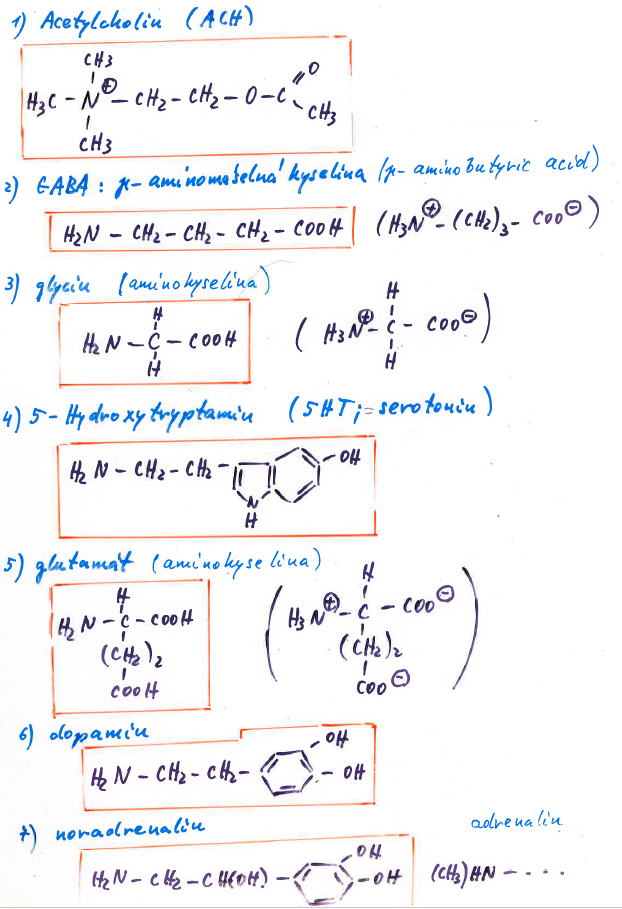 1) Acetylcholin (ACH)
CH3
H3C - N⊕ - CH2 - CH2 - O - C O
CH3
CH3
2) GABA : γ- aminomáselná kyselina (γ- aminobutyric acid)
H2N - CH2 - CH2 - CH2 - COOH (H3N⊕ - (CH2)3 - COO⊖)
3) glycin (aminokyselina)
H H
H2N - C - COOH (H3N⊕ - C - COO⊖)
H H
4) 5-Hydroxytryptamin (5HT; = serotonin)
H2N - CH2 - CH2 - OH
N
H
5) glutamát (aminokyselina)
H H
H2N - C - COOH (H3N⊕ - C - COO⊖
(CH2)2 (CH2)2
COOH COO⊖)
6) dopamin
OH
H2N - CH2 - CH2 - - OH
7) noradrenalin adrenalin
OH
H2N - CH2 - CH(OH) - - OH (CH3)HN - - - -